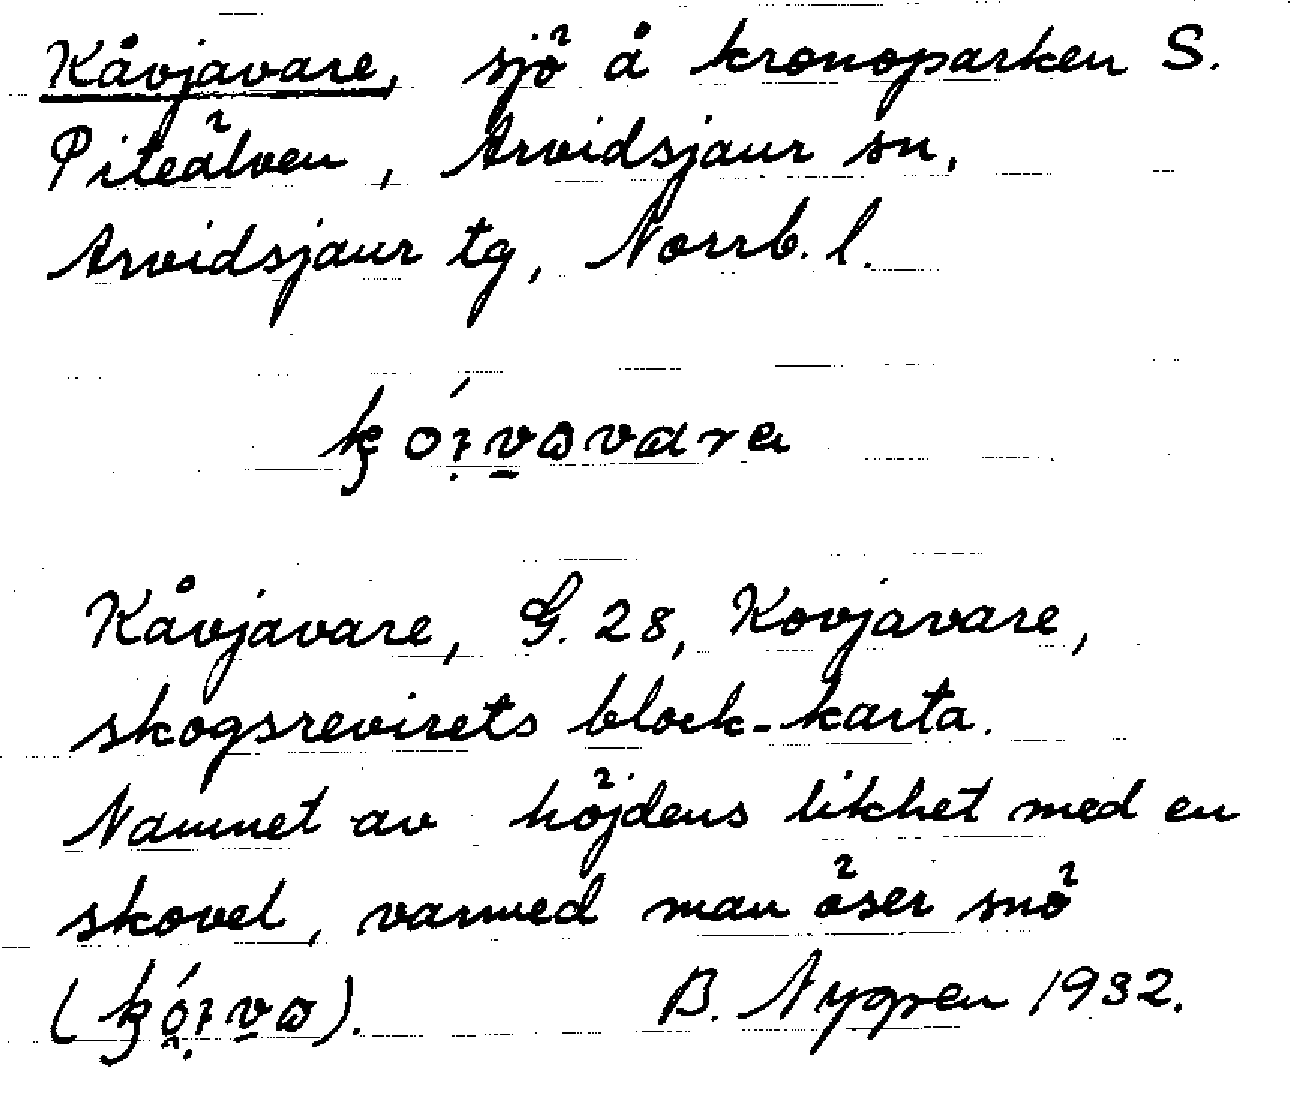 Kåvjavare, sjö å kronoparken S.
Piteälven, Arvidsjaur sn,
Arvidsjaur tg, Norrb. l.
Kåvjavare, G. 28, Kovjavare,
skogsrevirets block-karta.
Namnet av höjdens likhet med en
skovel, varmed man öser snö
B. Nygren 1932.